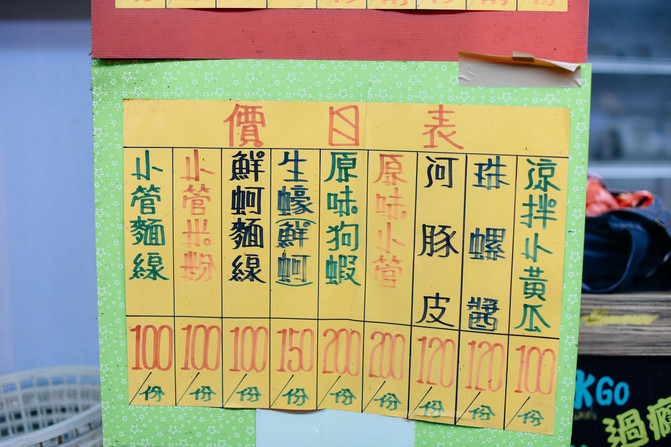 價目表
涼拌小黃瓜 100/份
珠螺醬 120/份
河豚皮 120/份
原味小管 200/份
原味狗蝦 200/份
生蠔鮮蚵 150/份
鮮蚵麵線 100/份
小管米粉 100/份
小管麵線 100/份
KGO
過癮